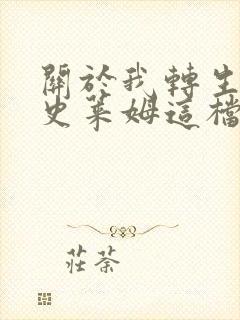 關於我轉生
史萊姆這檔
莊荼